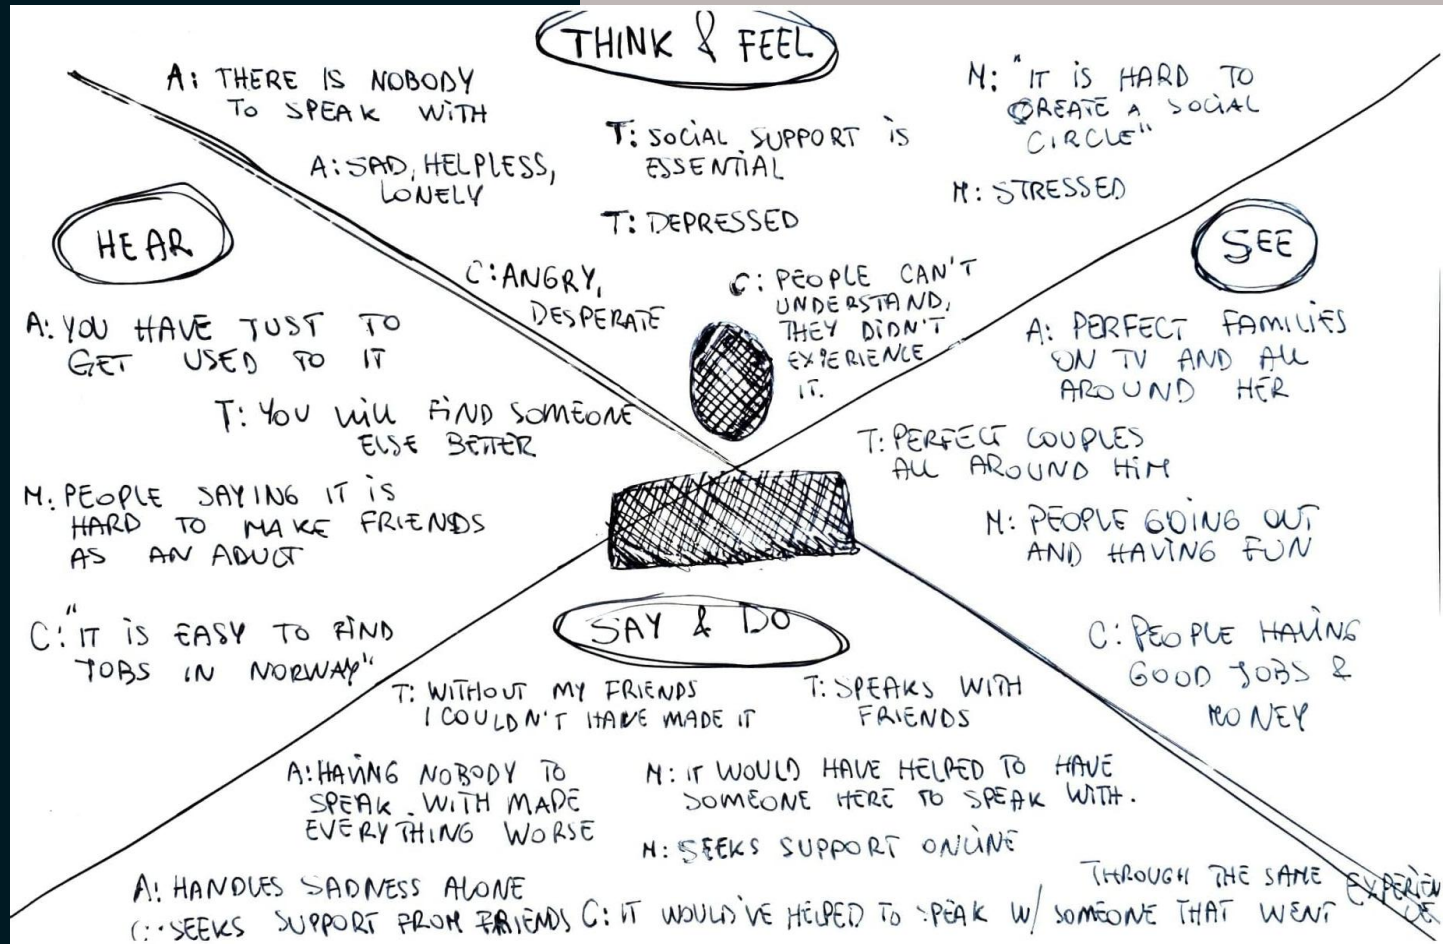 THINK & FEEL
A: THERE IS NOBODY
TO SPEAK WITH
A: SAD, HELPLESS,
LONELY
T: SOCIAL SUPPORT IS
ESSENTIAL
T: DEPRESSED
M: "IT IS HARD TO
CREATE A SOCIAL
CIRCLE"
M: STRESSED
C: ANGRY,
DESPERATE
C: PEOPLE CAN'T
UNDERSTAND,
THEY DIDN'T
EXPERIENCE
IT.
HEAR
A: YOU HAVE JUST TO
GET USED TO IT
T: YOU WILL FIND SOMEONE
ELSE BETTER
M: PEOPLE SAYING IT IS
HARD TO MAKE FRIENDS
AS AN ADULT
C: "IT IS EASY TO FIND
JOBS IN NORWAY"
SEE
A: PERFECT FAMILIES
ON TV AND ALL
AROUND HER
T: PERFECT COUPLES
ALL AROUND HIM
M: PEOPLE GOING OUT
AND HAVING FUN
C: PEOPLE HAVING
GOOD JOBS &
MONEY
SAY & DO
T: WITHOUT MY FRIENDS
I COULDN'T HAVE MADE IT
T: SPEAKS WITH
FRIENDS
A: HAVING NOBODY TO
SPEAK WITH MADE
EVERYTHING WORSE
M: IT WOULD HAVE HELPED TO HAVE
SOMEONE HERE TO SPEAK WITH.
M: SEEKS SUPPORT ONLINE
A: HANDLES SADNESS ALONE
C: SEEKS SUPPORT FROM FRIENDS
C: IT WOULD'VE HELPED TO SPEAK W/ SOMEONE THAT WENT
THROUGH THE SAME EXPERIEN
CE